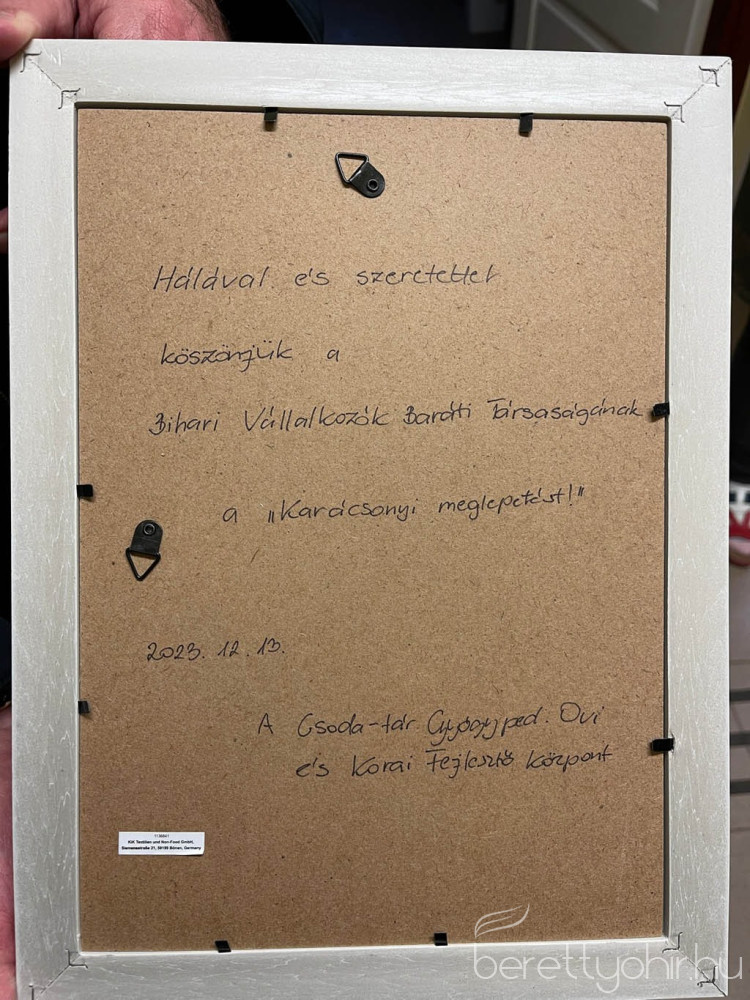 Hálával és szeretettel
köszönjük a
Bihari Vállalkozók Baráti Társaságának
a „Karácsonyi meglepetést!”
2023. 12. 13.
A Csoda-tár Gyógyped. Ovi
és Korai Fejlesztő Központ
KiK Textilien und Non-Food GmbH,
Siemensstraße 21, 59199 Bönen, Germany
berettyohir.hu